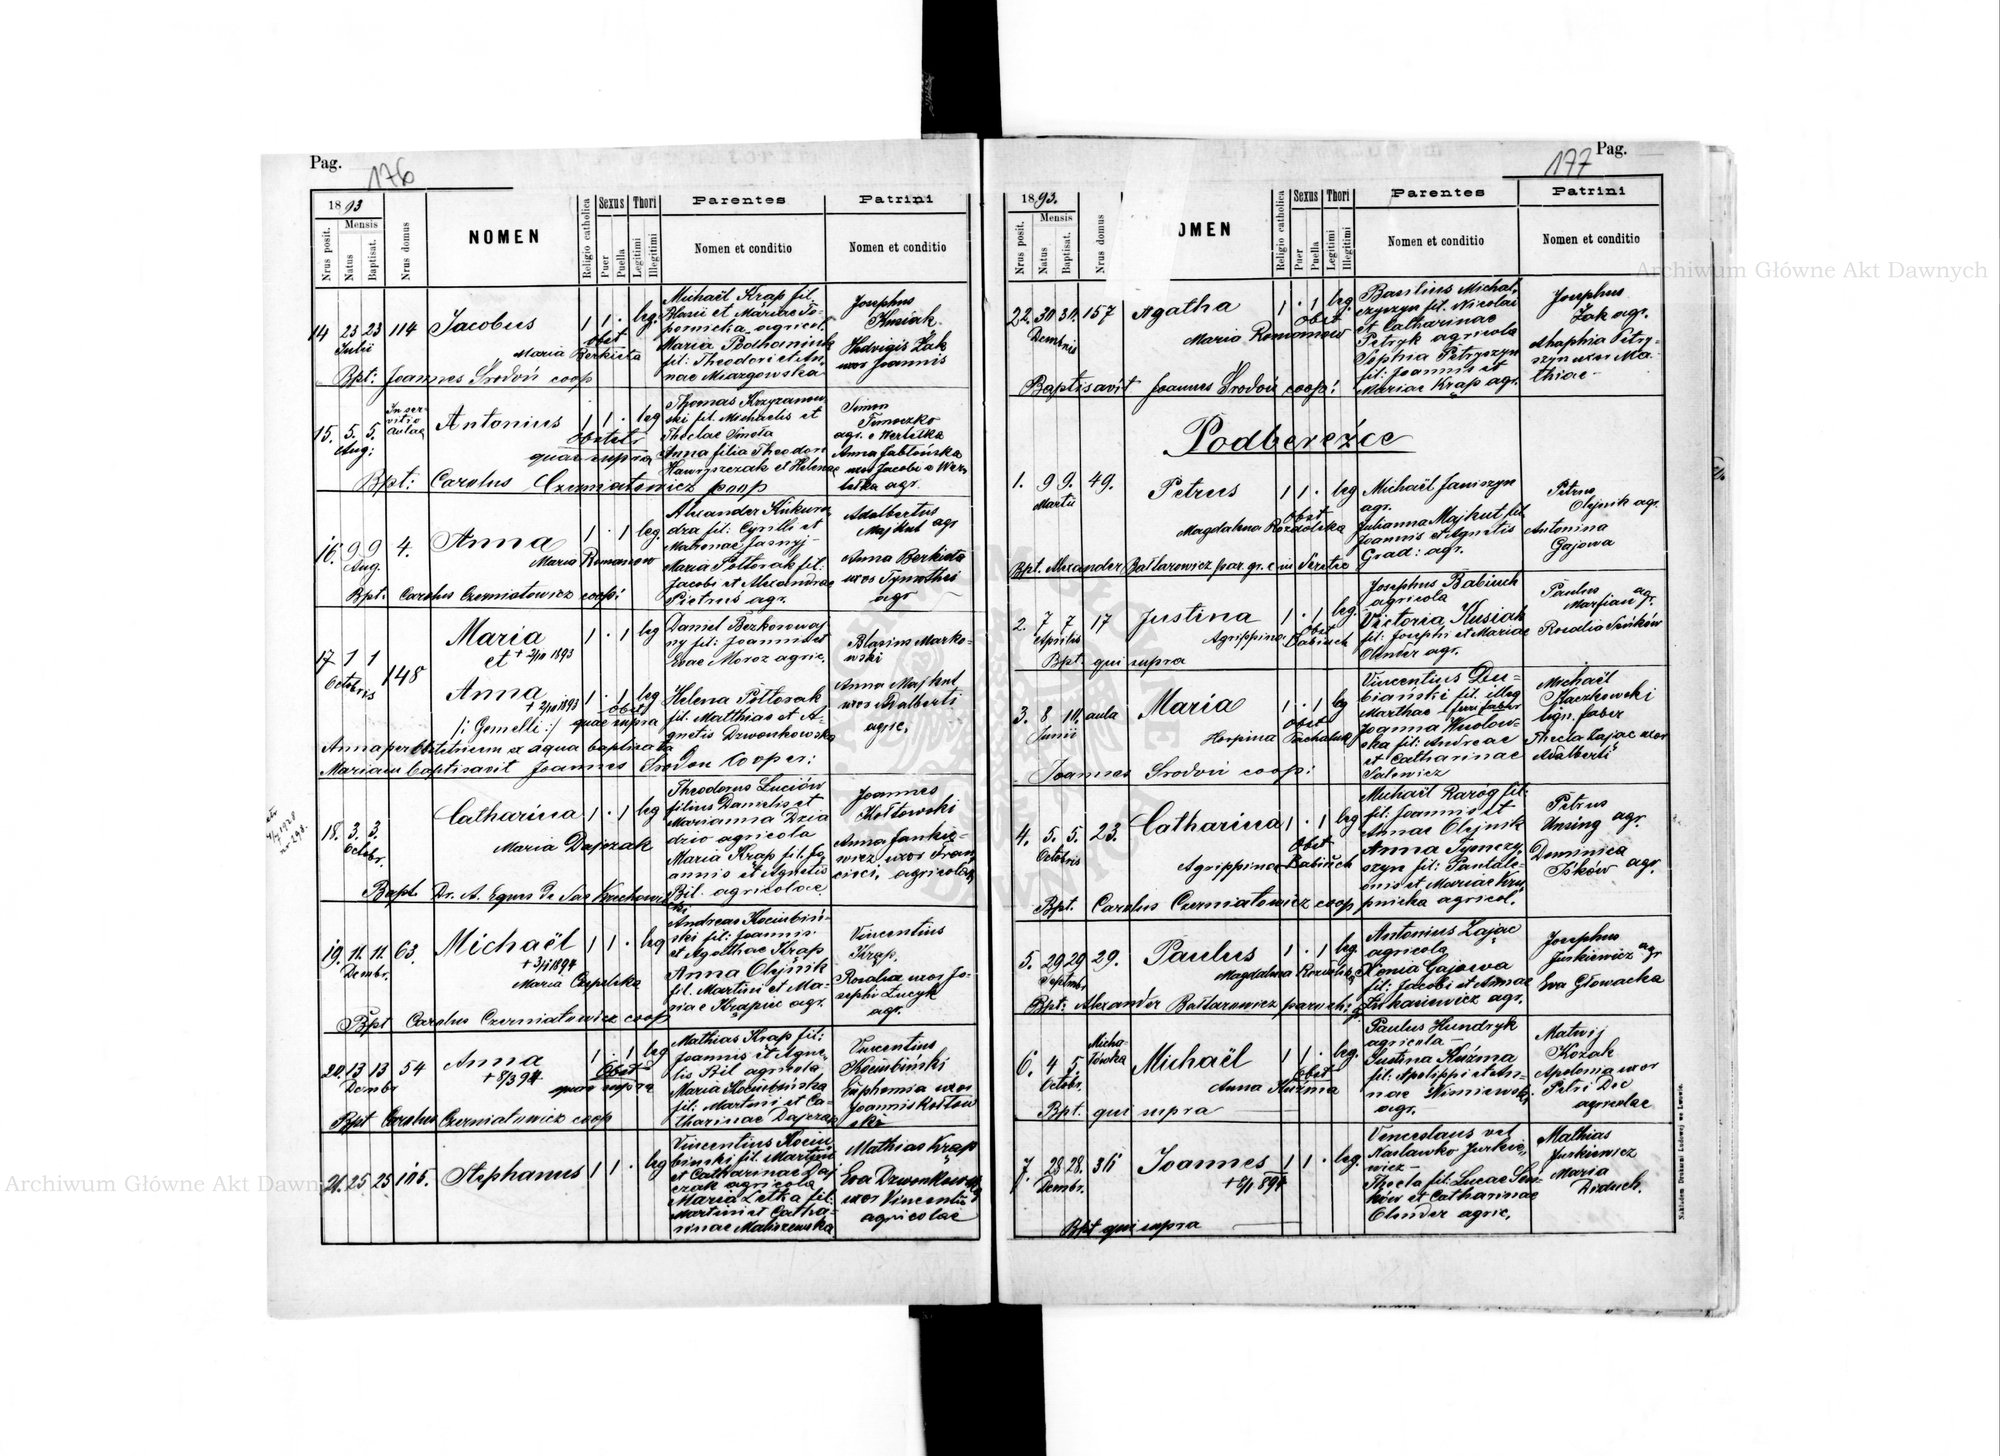 Pag.
176
1893
Mensis
Nrus posit.
Natus
Baptisat.
Nrus domus
NOMEN
Religio catholica
Sexus
Puer
Puella
Thori
Legitimi
Illegitimi
Parentes
Nomen et conditio
Patrini
Nomen et conditio
14 23 23 114 Jacobus 1 1 . leg.
Julii
obst
Maria Berkieta
Bpt: Joannes Środoń coop
Michaël Krąp fil.
Blasii et Mariae
agricol.
Maria
fil: Theodori et An-
nae Miazgowska
Josephus
Kusiak
Hedvigis Żak
uxor Joannis
15. 5. 5. In ser-
vitio
aulae
Aug:
Antonius 1 1 . leg
obstetr
quae supra
Bpt: Carolus Czerniatowicz coop
Thomas Krzyzanow
ski fil. Michaelis et
Theclae Smoła
Anna filia Theodori
Hawryszczak et Helenae
Simon
Tymoczko
agr. e Wertelka
Anna Jabłońska
uxor Jacobi e Wer
telka agr.
16. 9 9 4. Anna 1 . 1 leg
Aug.
Maria Romanow
Bpt. Carolus Czerniatowicz coop:
Alexander Kukuru
dza fil: Cyrilli et
Matronae Jasnyj
Maria Półtorak fil:
Jacobi et Alexandrae
Pietruś agr.
Adalbertus
Majkut agr
Anna Berkieta
uxor Tymothei
agr
17 1 1 148
Octobris
Maria 1 . 1 leg
et + 2/10 1893
Anna 1 . 1 leg
+ 2/10 1893 obst
/: Gemelli :/ quae supra
Anna per obstetricem ex aqua baptisata
Mariam baptisavit Joannes Środoń Cooper:
Daniel Bezkorowaj
ny fil: Joannis et
Evae Moroz agric.
Helena Półtorak
fil. Matthias et A-
gnetis Dzwonkowska
Blasius Marko-
wski
Anna Majkut
uxor Adalberti
agric.
18. 3. 3.
Octobr.
Catharina 1 . 1 leg
Maria Dajczak
Bapt. Dr. A. Eques de Nae Krechowi
cki
Theodorus Luciów
filius Danielis et
Marianna Dzia
dzio agricola
Maria Krąp fil. Jo
annis et Agnetis
Bil. agricolae
Joannes
Kołtowski
Anna Jankie-
wicz uxor Fran
cisci, agricolae
19. 11. 11. 63. Michaël 1 1 . leg
Dembr.
+ 3/1 1894
Maria Czepelska
Bpt Carolus Czerniatowicz coop
Andreas Kociubiń-
ski fil: Joannis
et Agathae Krąp
Anna Olejnik
fil. Martini et Ma-
riae Krąpiec agr.
Vincentius
Krąp.
Rosalia uxor Jo-
sephi Łucyk
agr.
20. 13 13 54 Anna 1 . 1 leg
Dembr
+ 8/3 94
Obst
quae supra
Bpt Carolus Czerniatowicz coop
Mathias Krąp fil:
Joannis et Agne-
tis Bil agricola
Maria Kociubińska
fil: Martini et Ca-
tharinae Dajczak
Vincentius
Kociubiński
Euphemia uxor
Joannis Kołtow
ski
21. 25 25 105. Stephanus 1 1 . leg
Vincentius Kociu
biński fil. Martini
et Catharinae Daj
czak agricola
Maria Letka fil:
Martini et Catha-
rinae Maliszewska
Mathias Krąp
Eva Dzwonkowska
uxor Vincentii
agricolae
Pag.
177
1893.
Mensis
Nrus posit.
Natus
Baptisat.
Nrus domus
OMEN
Religio catholica
Sexus
Puer
Puella
Thori
Legitimi
Illegitimi
Parentes
Nomen et conditio
Patrini
Nomen et conditio
22. 30 31. 157 Agatha 1 . 1 leg
Dembris
obst
Maria Romanow
Baptisavit Joannes Środoń coop:
Basilius Michal-
czyszyn fil. Nicolai
et Catharinae
Petryk agricola
Sophia Petryszyn
fil: Joannis et
Mariae Krąp agr.
Josephus
Żak agr.
Ahaphia Petry-
szyn uxor Ma-
thiae
Podberezce
1. 9 9. 49. Petrus 1 1 . leg
Martii
obst
Magdalena Rozdolska
Bpt. Alexander Bałtarowicz par. gr. c in Seretec
Michaël Janiszyn
agr.
Julianna Majkut fil
Joannis et Agnetis
Grad: agr.
Petrus
Olejnik agr.
Antonina
Gajowa
2. 7 7 17 Justina 1 . 1 leg.
Aprilis
obst
Agrippina Babiuch
Bpt. qui supra
Josephus Babiuch
agricola
Victoria Kusiak
fil: Josephi et Mariae
Olender agr.
Paulus agr.
Marfian
Rosalia Seńków
3. 8 10. aula Maria 1 . 1 leg
Junii
obst
Horpina Pachaluk
Joannes Środoń coop:
Vincentius Du-
biański fil. illeg
Marthae - ferri faber
Joanna Wesołow-
ska fil: Andreae
et Catharinae
Salewicz
Michaël
Kaczkowski
lign. faber
Thecla Zając uxor
Adalberti
4. 5. 5. 23. Catharina 1 . 1 leg
Octobris
obst
Agrippina Babiuch
Bpt. Carolus Czerniatowicz coop
Michaël Rarog fil:
fil: Joannis et
Annae Olejnik
Anna Tymczy
szyn fil: Pantale-
onis et Mariae Kru
pnicka agricol.
Petrus
Unsing agr.
Dominica
Iśków agr.
5. 29 29 29. Paulus 1 . 1 leg.
Septmbr
Magdalena
Bpt: Alexander Bałtarowicz paroch: gr.
Antonius Zając
agricola
Xenia Gajowa
fil: Jacobi et Annae
Łukasiewicz agr.
Josephus
Jurkiewicz agr
Eva Głowacka
6. 4 5. Micha-
łówka
Octobr.
Michaël 1 1 . leg.
obst
Anna Kuźma
Bpt. qui supra
Paulus Hundryk
agricola
Justina Kuźma
fil: Apolippi et An-
nae Wiśniewski
agr.
Matwij
Kozak
Apolonia uxor
Petri Dec
agricolae
7. 28 28. 36 Joannes 1 1 . leg.
Dembr.
+ 6/1 894
Bpt qui supra
Venceslaus vel
Nasławko Jurkie-
wicz
Thecla fil: Lucae Sen-
ków et Catharinae
Olender agric.
Mathias
Jurkiewicz
Maria
Diduch.
Nakładem Drukarni Ludowej we Lwowie.
Archiwum Główne Akt Dawnych
Archiwum Główne Akt Dawnych